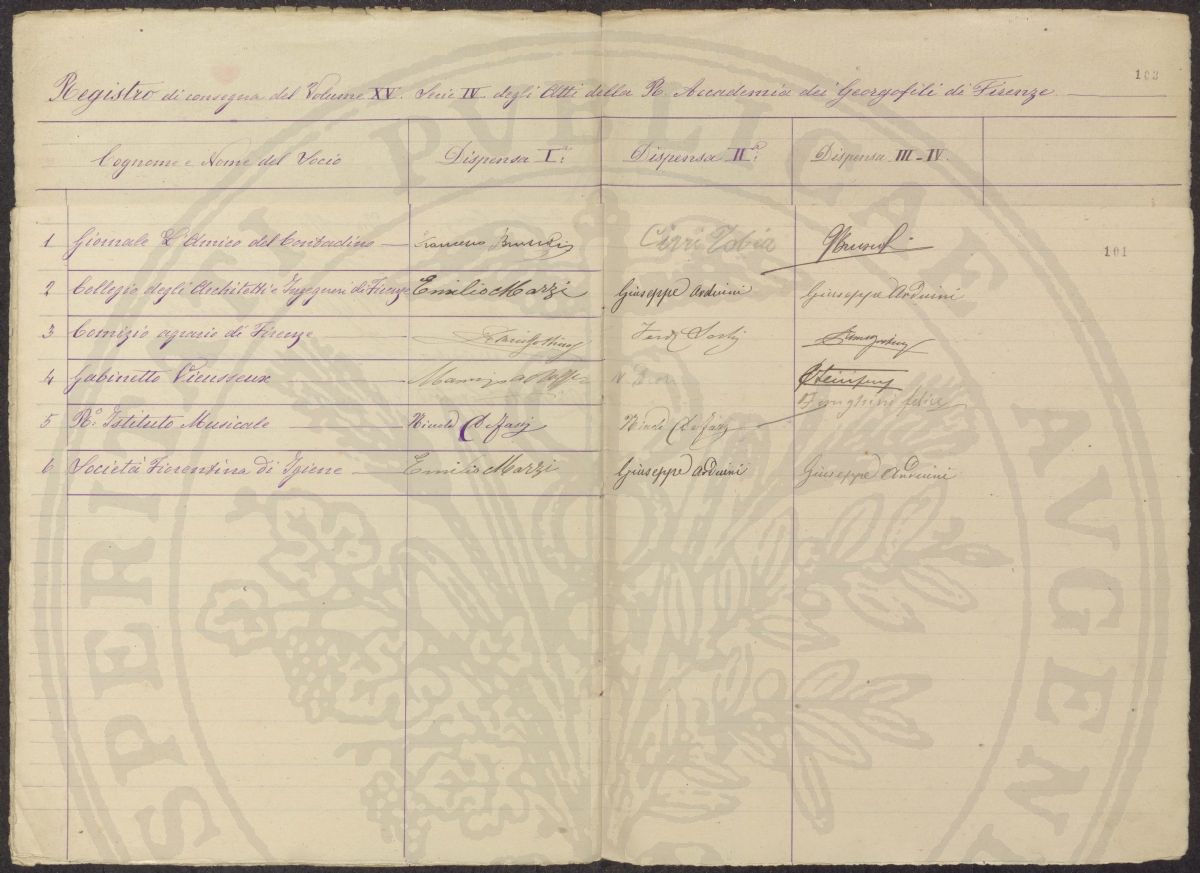 102
Registro di consegna del Volume XV. Serie IV degli Atti della R. Accademia dei Georgofili di Firenze
Cognome e Nome del Socio Dispensa Iª: Dispensa IIª: Dispensa III-IV.
101
1 Giornale L'Amico del Contadino Francesco Cirri Tobia
2 Collegio degli Architetti e Ingegneri di Firenze Emilio Mazzi Giuseppe Arduini Giuseppe Arduini
3 Comizio agrario di Firenze
4 Gabinetto Vieusseux
felice
5 R.º Istituto Musicale
6 Società Fiorentina di Igiene Emilio Mazzi Giuseppe Arduini Giuseppe Arduini
PROSPERITATI PUBLICAE AUGENDAE